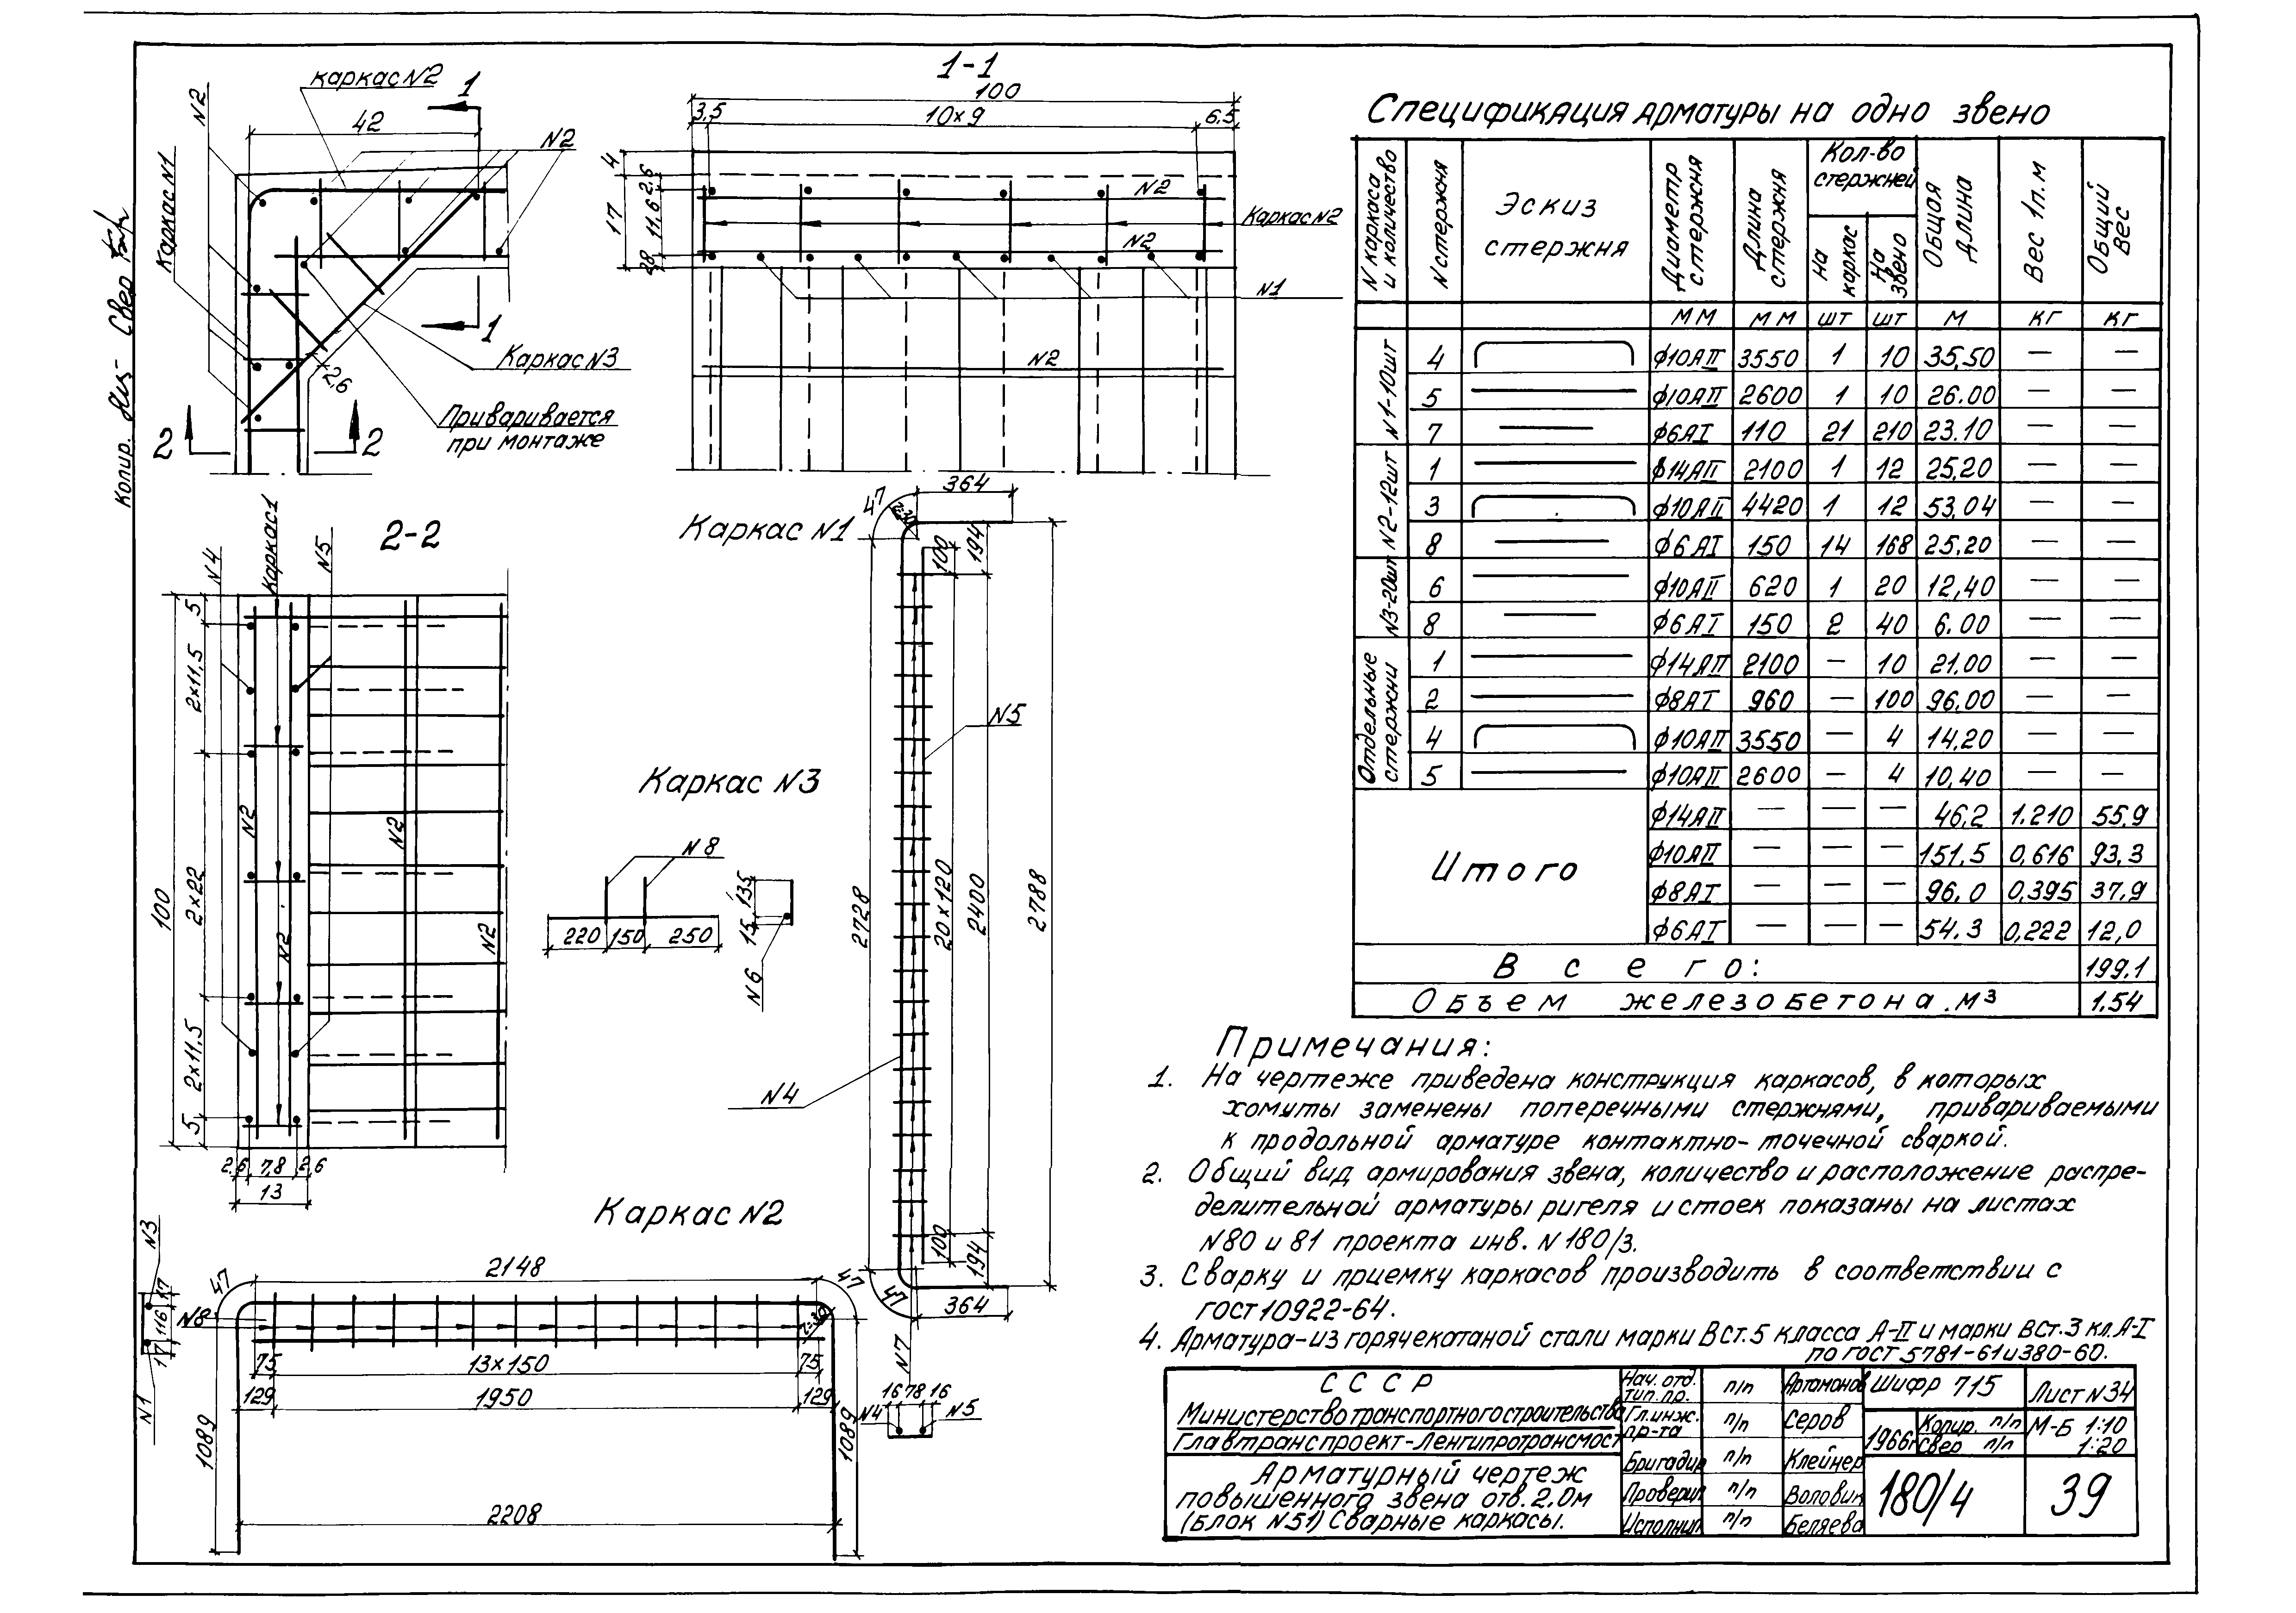 каркас N2
1
42
N2
N2
Каркас N1
Каркас N3
2,6
Привариваeтся
при монтаже
1
2
2
Копир.
Свер
1-1
100
3,5
10×9
6,5
4
2,6
17
11,6
2,8
N2
N2
Каркас N2
N1
N2
2-2
N4
Каркас1
N5
100
5
2×11,5
2×22
2×11,5
5
N2
N2
N2
N2
2,6
7,8
2,6
13
Каркас N1
47
364
r=30
100
194
N5
2728
20×120
2400
2788
N4
100
194
47
364
N7
16 78 16
N4
N5
Каркас N3
N8
220 150 250
135
15
N6
Каркас N2
N3
47
2148
47
17
116
17
N8
r=30
N1
75
13×150
75
129
1950
129
1089
1089
2208
Спецификация арматуры на одно звено
N каркаса и количество
N стержня
Эскиз стержня
Диаметр стержня
Длина стержня
Кол-во стержней
На каркас
На звено
Общая длина
Вес 1п.м
Общий вес
мм мм шт шт м кг кг
N1-10шт
4 ф10АII 3550 1 10 35,50 — —
5 ф10АII 2600 1 10 26.00 — —
7 ф6АI 110 21 210 23.10 — —
N2-12шт
1 ф14АII 2100 1 12 25,20 — —
3 ф10АII 4420 1 12 53,04 — —
8 ф6АI 150 14 168 25,20 — —
N3-20шт
6 ф10АII 620 1 20 12,40 — —
8 ф6АI 150 2 40 6.00 — —
Отдельные стержни
1 ф14АII 2100 — 10 21.00 — —
2 ф8АI 960 — 100 96.00 — —
4 ф10АII 3550 — 4 14,20 — —
5 ф10АII 2600 — 4 10,40 — —
Итого
ф14АII — — — 46,2 1.210 55,9
ф10АII — — — 151.5 0,616 93,3
ф8АI — — — 96.0 0,395 37,9
ф6АI — — — 54.3 0,222 12,0
Всего: 199,1
Объем железобетона.м³ 1.54
Примечания:
1. На чертеже приведена конструкция каркасов, в которых
хомуты заменены поперечными стержнями, привариваемыми
к продольной арматуре контактно-точечной сваркой.
2. Общий вид армирования звена, количество и расположение распре-
делительной арматуры ригеля и стоек показаны на листах
N80 и 81 проекта инв. N180/3.
3. Сварку и приемку каркасов производить в соответствии с
гост 10922-64.
4. Арматура-из горячекатаной стали марки Вст.5 класса А-II и марки вст.3 кл.А-I
по гост 5781-61 и 380-60.
СССР
Министерство транспортного строительства
Главтранспроект-Ленгипротрансмост
Арматурный чертеж
повышенного звена отв. 2,0м
(блок N51) Сварные каркасы.
Нач. отд. тип. пр. п/п Артамонов
Гл.инж. пр-та п/п Серов
Бригадир п/п Клейнер
Проверил п/п Воловик
Исполнил п/п Беляева
Шифр 715
Лист N34
1966г
Копир. п/п
Свер п/п
М-Б 1:10
1:20
180/4
39